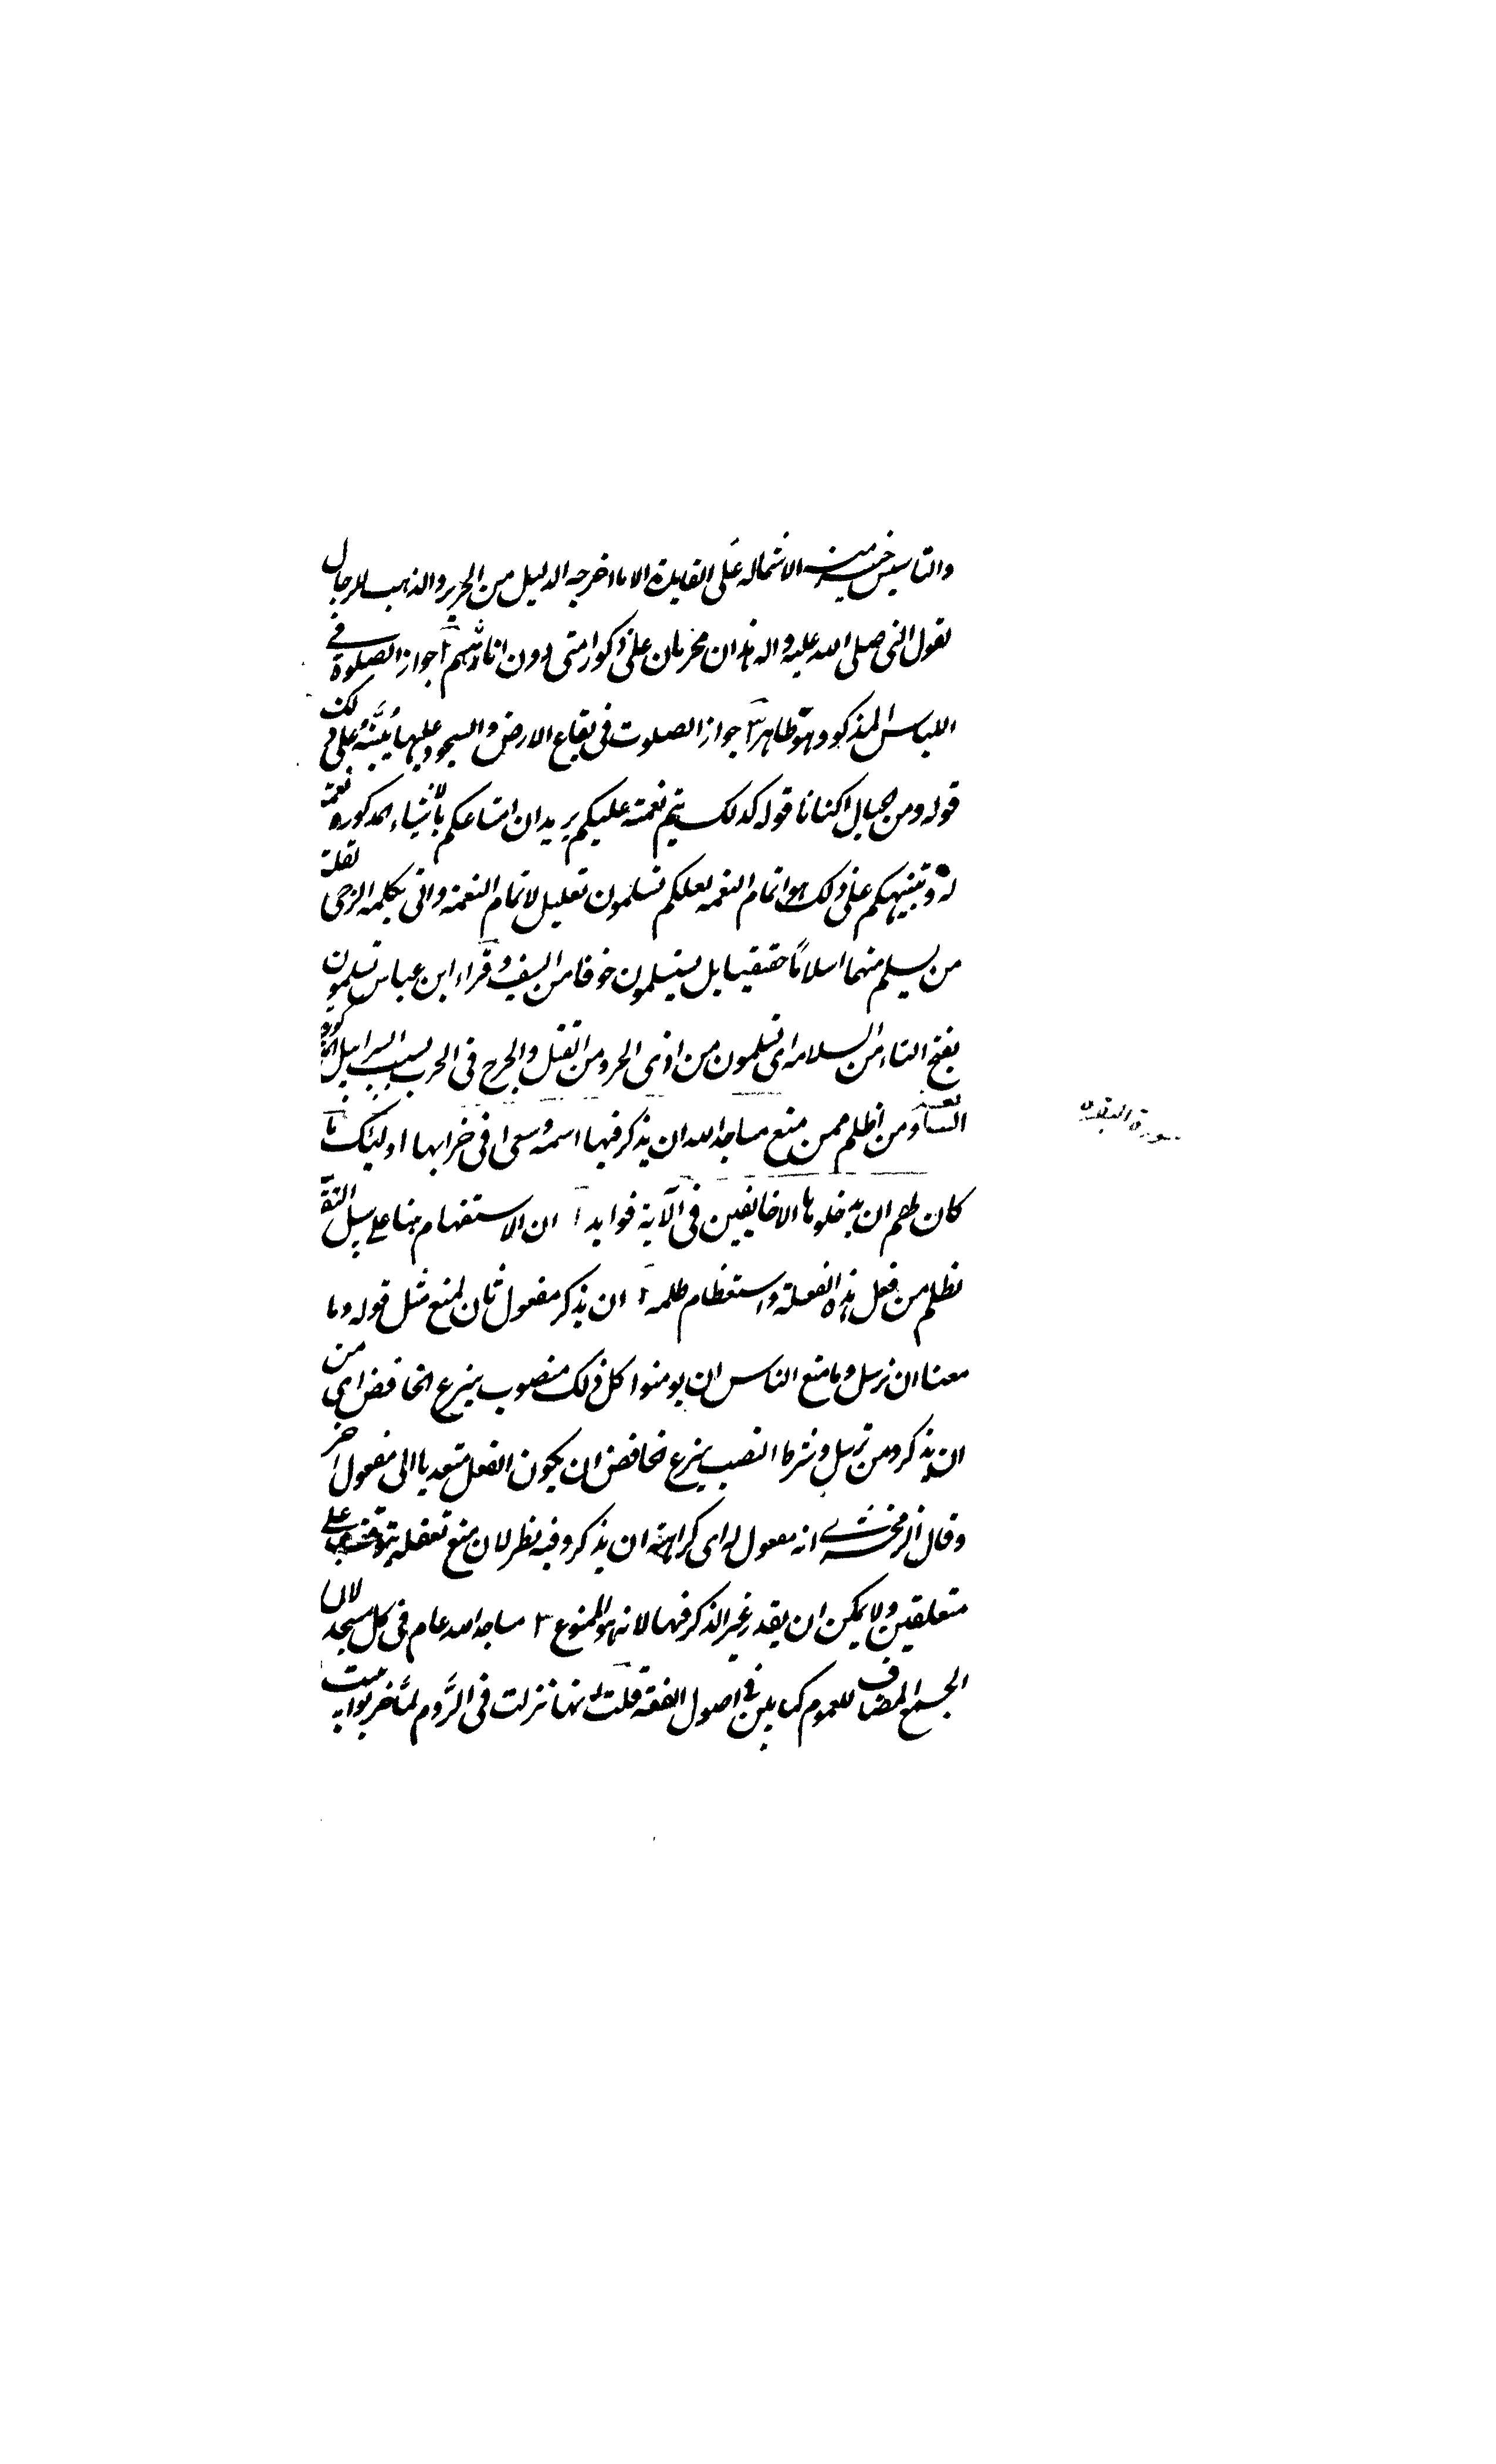 والتاسيس خير منه لاشتماله على الفايدة الا ما اخرجه الدليل من الحرير والذهب للرجال
لقول النبى صلى الله عليه واله هذان محرمان على ذكور امتى دون اناثهم ٢ جواز الصلوة فى
اللباس المذكور وهو ظاهر ٣ جواز الصلوت فى بقاع الارض والسجود عليها ينبه على ذلك
قوله ومن الجبال اكنانا قوله كذلك يتم نعمته عليكم يريد ان امتناعكم بالاشياء المذكوره نعمة
له وتنبيهكم على ذلك هو اتمام النعمه لعلكم تسلمون تعليل لاتمام النعمة واتى بكلمه الترجى لقلة
من يسلم منهم اسلاما حقيقيا بل يستسلمون خوفا من السيف وقراء ابن عباس تسلمون
بفتح التاء من السلامه اى تسلمون من اذى الحر ومن القتل والجرح فى الحرب بسبب السرابيل المذكوره
ومن اظلم ممن منع مساجد الله ان يذكر فيها اسمه وسعى فى خرابها اوليك ما
كان لهم ان يدخلوها الا خايفين فى الآية فوايد ١ ان الاستفهام هنا على سبيل
لظلم من فعل هذه الفعلة واستعظام ظلمه ٢ ان يذكر مفعول ثان لمنع مثل قوله وما
منعنا ان نرسل وما منع الناس ان يومنوا كل ذلك منصوب بنزع الخافض اى من
ان يذكر ومن نرسل وشرط النصب بنزع الخافض ان يكون الفعل متعديا الى مفعول اخر
وقال الزمخشرى انه مفعول له اى كراهة ان يذكر وفيه نظر لان منع تعقله يتوقف على
متعلقين ولا يمكن ان يقدر غير الذكر فيها لانه هو الممنوع ٣ مساجد الله عام فى كل مسجد لان
الجمع المضاف للعموم كما بين فى اصول الفقه قلت انها نزلت فى الروم لما خربوا بيت
سورة البقره